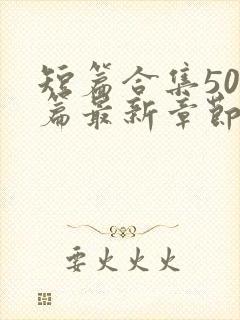 短篇合集50
篇最新章节
要火火火